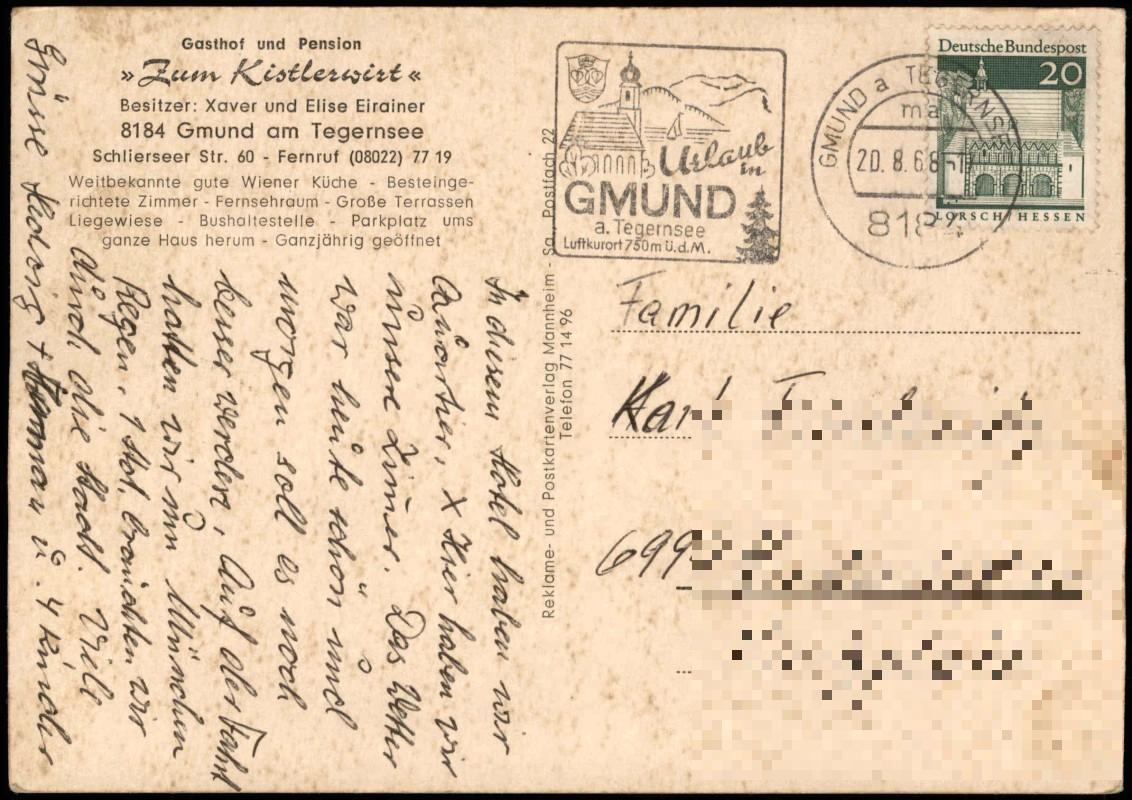 Gasthof und Pension
»Zum Kistlerwirt«
Besitzer: Xaver und Elise Eirainer
8184 Gmund am Tegernsee
Schlierseer Str. 60 - Fernruf (08022) 77 19
Weitbekannte gute Wiener Küche - Besteinge-
richtete Zimmer - Fernsehraum - Große Terrassen
Liegewiese - Bushaltestelle - Parkplatz ums
ganze Haus herum - Ganzjährig geöffnet
In diesem Hotel haben wir
Quartier, X Hier haben wir
unsere Zimer. Das Wetter
war heute schön und
morgen soll es noch
besser werden, Auf der Fahrt
hatten wir in München
Regen, 1 Std. brauchten wir
durch die Stadt. Viele
Grüsse Hedwig + Herman u. 4 Kinder
Reklame- und Postkartenverlag Mannheim - Sa., Postfach 22
Telefon 77 14 96
Urlaub
in
GMUND
a. Tegernsee
Luftkurort 750m ü.d.M.
GMUND a TEGERNSEE
ma
20.8.68-
8184
Deutsche Bundespost
20
LORSCH/HESSEN
Familie
Karl
699